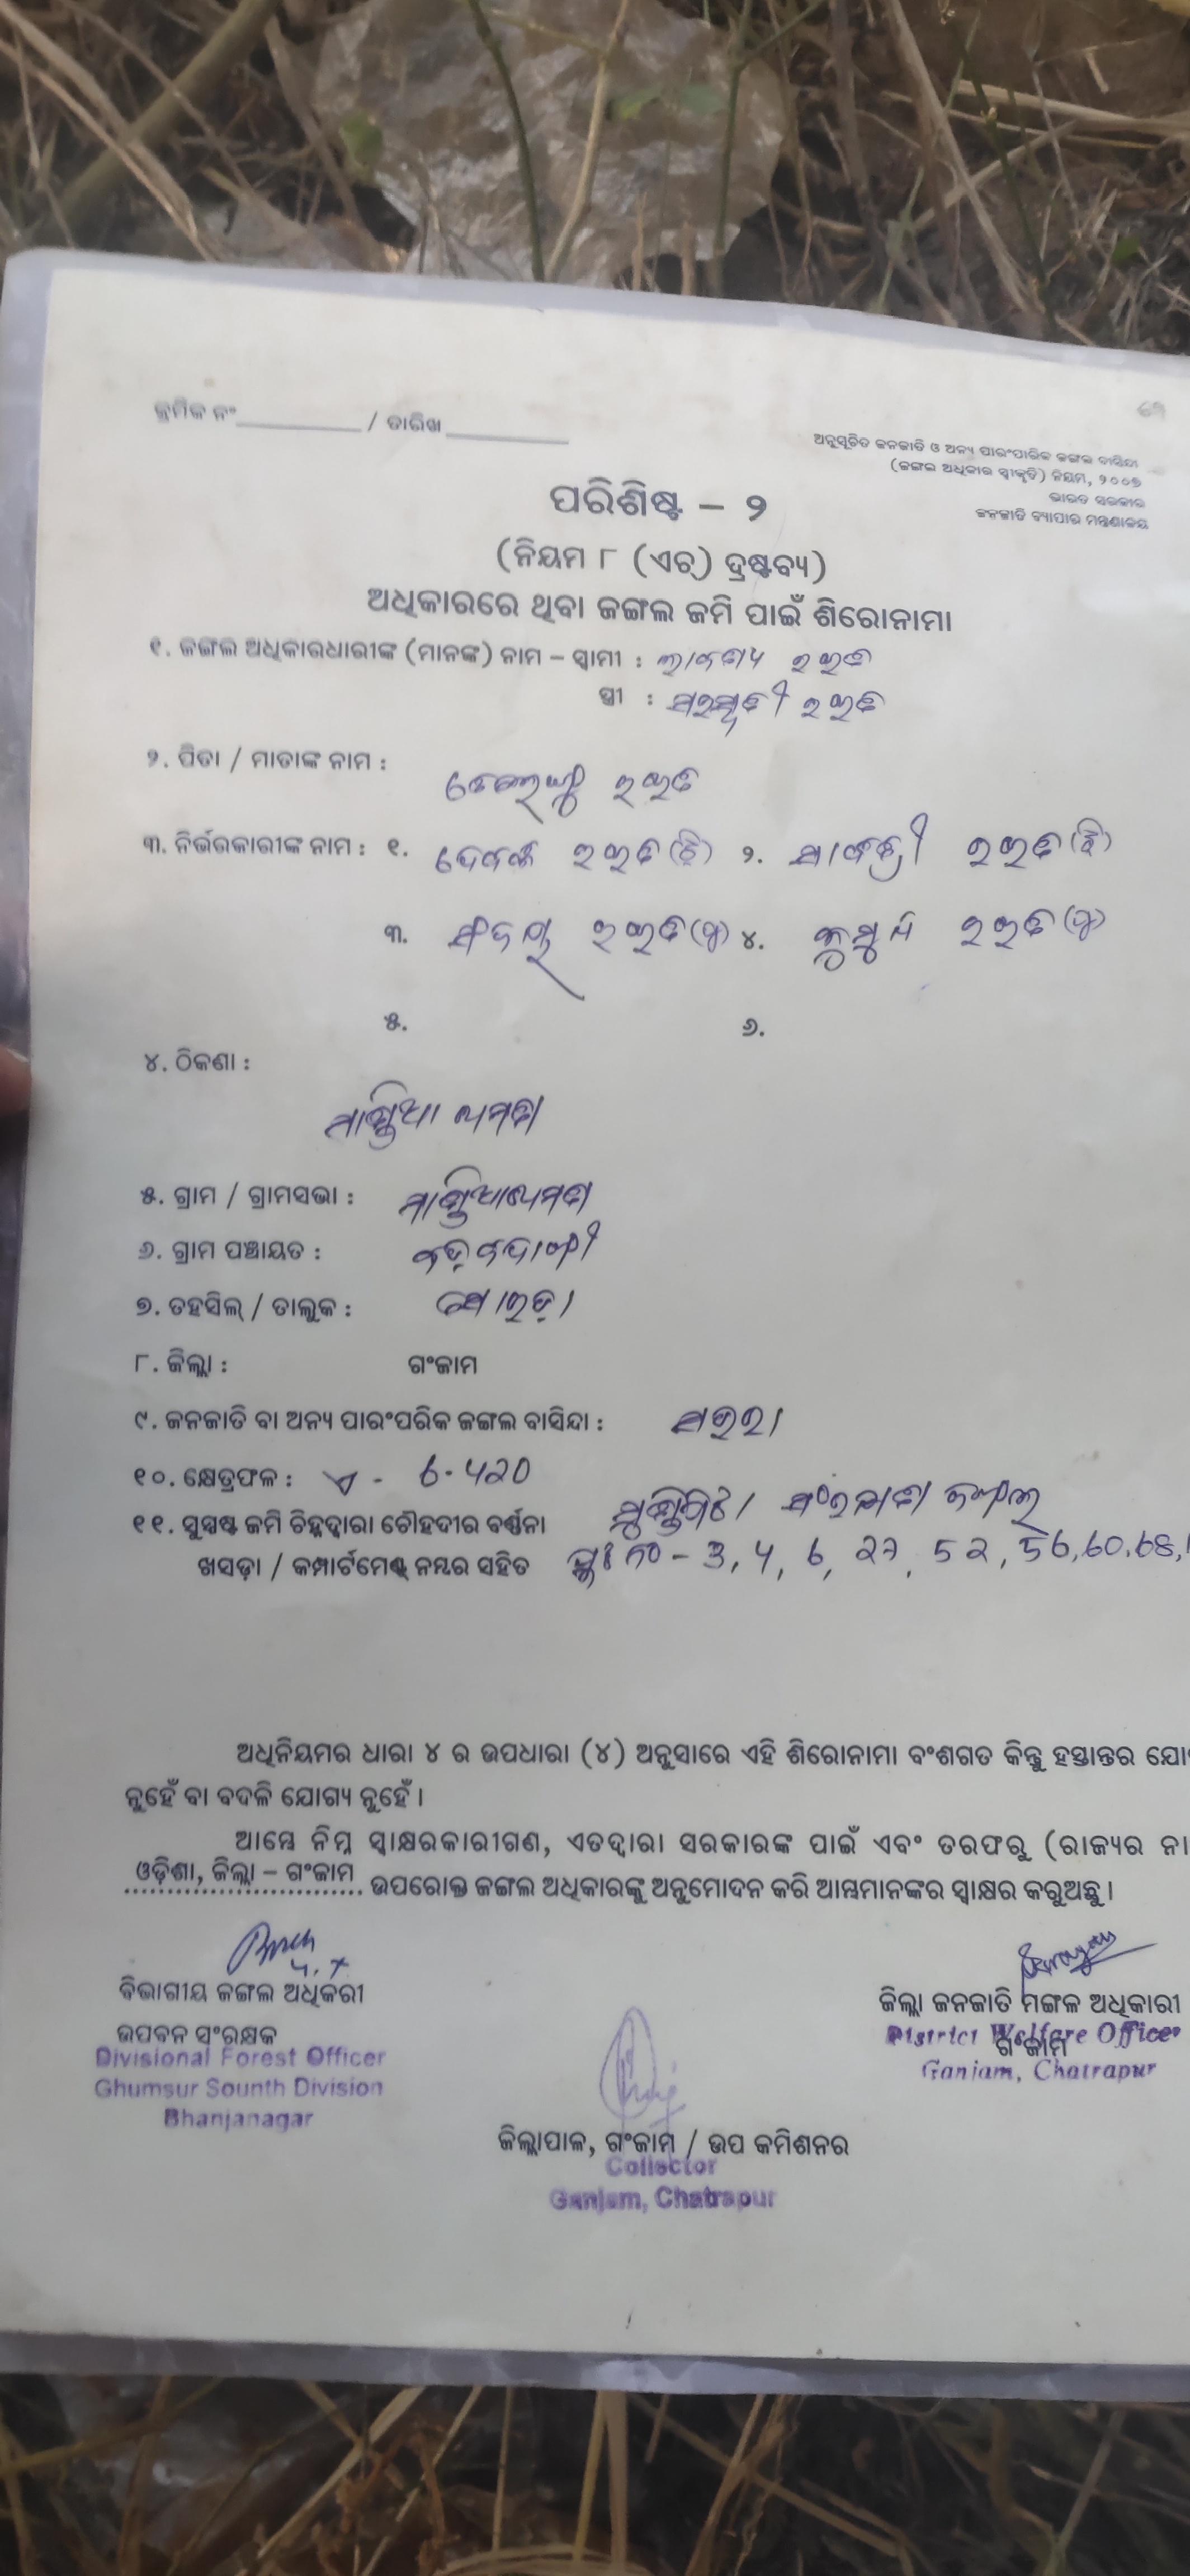 କ୍ରମିକ ନଂ / ତାରିଖ
ଅନୁସୂଚିତ ଜନଜାତି ଓ ଅନ୍ୟ ପାରଂପାରିକ ଜଙ୍ଗଲ ବାସିନ୍ଦା
(ଜଙ୍ଗଲ ଅଧିକାର ସ୍ୱୀକୃତି) ନିୟମ, ୨୦୦୭
ଭାରତ ସରକାର
ଜନଜାତି ବ୍ୟାପାର ମନ୍ତ୍ରଣାଳୟ
ପରିଶିଷ୍ଟ – ୨
(ନିୟମ ୮ (ଏଚ୍) ଦ୍ରଷ୍ଟବ୍ୟ)
ଅଧିକାରରେ ଥିବା ଜଙ୍ଗଲ ଜମି ପାଇଁ ଶିରୋନାମା
୧. ଜଙ୍ଗଲ ଅଧିକାରଧାରୀଙ୍କ (ମାନଙ୍କ) ନାମ – ସ୍ୱାମୀ :
ସ୍ତ୍ରୀ : ସରସ୍ୱତୀ ରଇତ
୨. ପିତା / ମାତାଙ୍କ ନାମ :
ରଇତ
୩. ନିର୍ଭରକାରୀଙ୍କ ନାମ : ୧. ରଇତ (ଝି) ୨. ସାବିତ୍ରୀ ରଇତ (ଝି)
୩. ରଇତ (ପୁ) ୪. ରଇତ (ପୁ)
୫. ୬.
୪. ଠିକଣା :
୫. ଗ୍ରାମ / ଗ୍ରାମସଭା :
୬. ଗ୍ରାମ ପଞ୍ଚାୟତ :
୭. ତହସିଲ୍ / ତାଲୁକ : ସୋରଡ଼ା
୮. ଜିଲ୍ଲା : ଗଂଜାମ
୯. ଜନଜାତି ବା ଅନ୍ୟ ପାରଂପରିକ ଜଙ୍ଗଲ ବାସିନ୍ଦା : ସଉରା
୧୦. କ୍ଷେତ୍ରଫଳ : ଏ - 6.420
୧୧. ସୁସ୍ପଷ୍ଟ ଜମି ଚିହ୍ନଦ୍ୱାରା ଚୌହଦୀର ବର୍ଣ୍ଣନା
ଖସଡ଼ା / କମ୍ପାର୍ଟମେଣ୍ଟ ନମ୍ବର ସହିତ ପ୍ଲଃ ନଂ – 3, 4, 6, 27, 52, 56, 60, 68,
ଅଧିନିୟମର ଧାରା ୪ ର ଉପଧାରା (୪) ଅନୁସାରେ ଏହି ଶିରୋନାମା ବଂଶଗତ କିନ୍ତୁ ହସ୍ତାନ୍ତର
ନୁହେଁ ବା ବଦଳି ଯୋଗ୍ୟ ନୁହେଁ ।
ଆମ୍ଭେ ନିମ୍ନ ସ୍ୱାକ୍ଷରକାରୀଗଣ, ଏତଦ୍ୱାରା ସରକାରଙ୍କ ପାଇଁ ଏବଂ ତରଫରୁ (ରାଜ୍ୟର
ଓଡ଼ିଶା, ଜିଲ୍ଲା – ଗଂଜାମ ଉପରୋକ୍ତ ଜଙ୍ଗଲ ଅଧିକାରଙ୍କୁ ଅନୁମୋଦନ କରି ଆମ୍ଭମାନଙ୍କର ସ୍ୱାକ୍ଷର କରୁଅଛୁ ।
ବିଭାଗୀୟ ଜଙ୍ଗଲ ଅଧିକରୀ
ଉପବନ ସଂରକ୍ଷକ
Divisional Forest Officer
Ghumsur Sounth Division
Bhanjanagar
ଜିଲ୍ଲା ଜନଜାତି ମଙ୍ଗଳ ଅଧିକାରୀ
District Welfare Officer
ଗଂଜାମ
Ganjam, Chatrapur
ଜିଲ୍ଲାପାଳ, ଗଂଜାମ / ଉପ କମିଶନର
Collector
Ganjam, Chatrapur